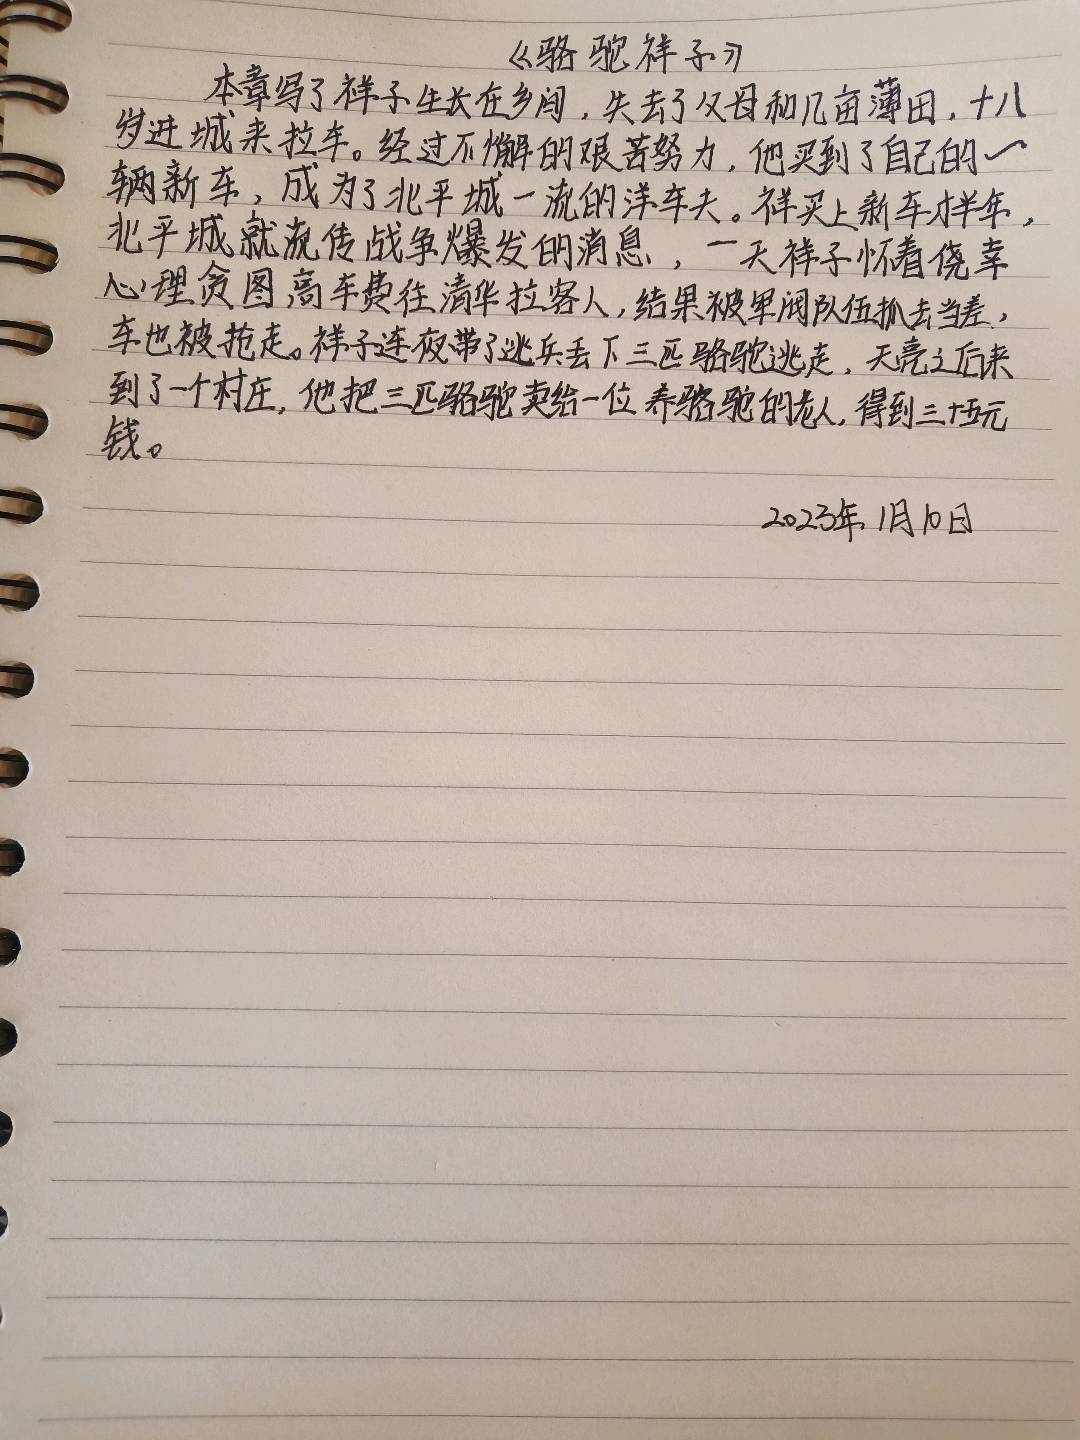 《骆驼祥子》
本章写了祥子生长在乡间，失去了父母和几亩薄田，十八
岁进城来拉车。经过不懈的艰苦努力，他买到了自己的一
辆新车，成为了北平城一流的洋车夫。祥买上新车才半年，
北平城就流传战争爆发的消息，一天祥子怀着侥幸
心理贪图高车费往清华拉客人，结果被军阀队伍抓去当差，
车也被抢走。祥子连夜带了逃兵丢下三匹骆驼逃走，天亮之后来
到了一个村庄，他把三匹骆驼卖给一位养骆驼的老人，得到三十五元
钱。
2023年1月10日